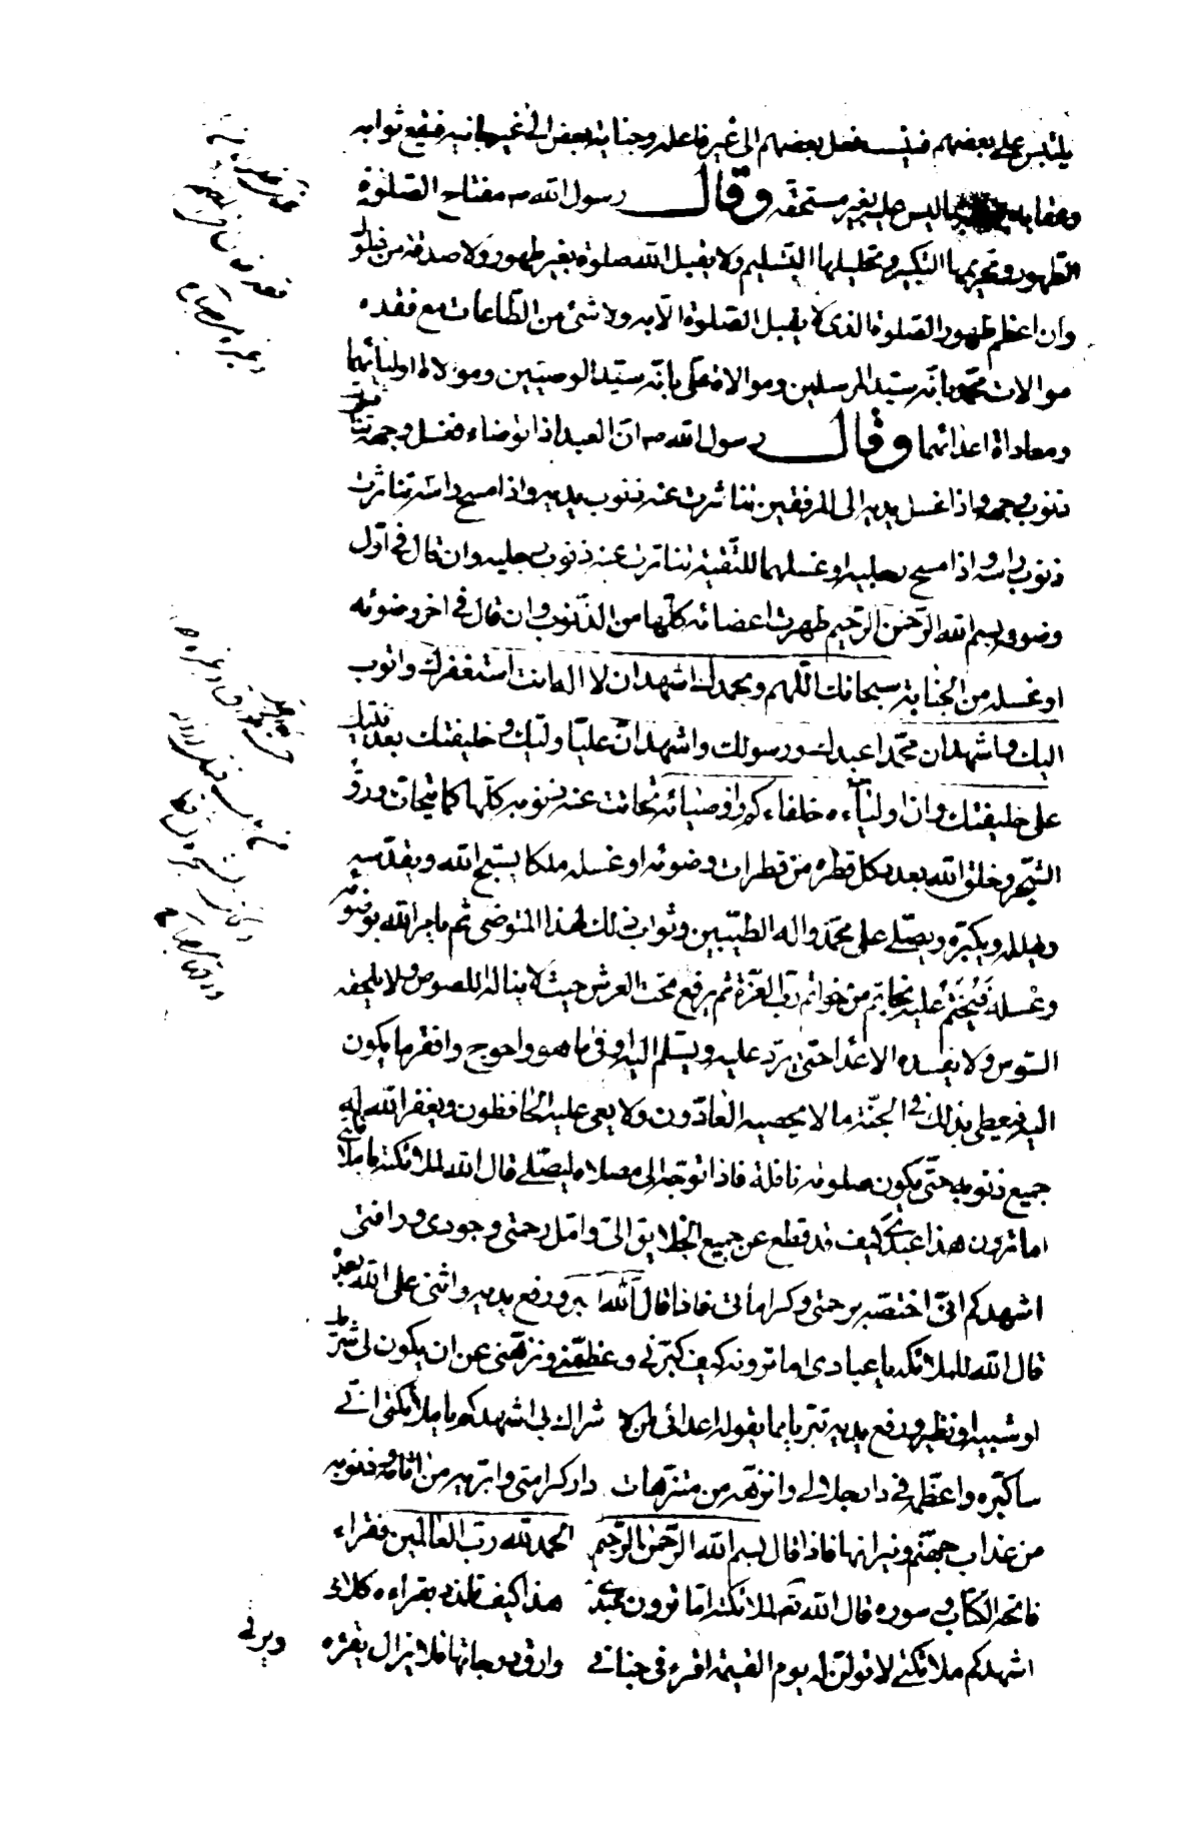 يلتبس على بعضهم فينسب فعل بعضهم الى غير فاعله وجناية بعض الى غير جانيه فيقع ثوابه
وعقابه بما ليس عليه بغير مستحقه وقال رسول الله ص مفتاح الصلوة
الطهور وتحريمها التكبير وتحليلها التسليم ولا يقبل الله صلوة بغير طهور ولا صدقة من غلول
وان اعظم طهور الصلوة الذى لا يقبل الصلوة الا به ولا شئ من الطاعات مع فقده
موالات محمد بانه سيد المرسلين وموالاة على بانه سيد الوصيين وموالاة اوليائهما
ومعاداة اعدائهما وقال رسول الله ص ان العبد اذا توضاء فغسل وجهه تناثرت
ذنوب وجهه واذا غسل يديه الى المرفقين تناثرت عنه ذنوب يديه واذا مسح راسه تناثرت
ذنوب راسه واذا مسح رجليه او غسلهما للتقية تناثرت عنه ذنوب رجليه وان قال فى اول
وضوئه بسم الله الرحمن الرحيم طهرت اعضائه كلها من الذنوب وان قال فى اخر وضوئه
او غسله من الجنابة سبحانك اللهم وبحمدك اشهد ان لا اله الا انت استغفرك واتوب
اليك واشهد ان محمدا عبدك ورسولك واشهد ان عليا وليك وخليفتك بعد نبيك
على خليفتك وان اولياءه خلفاءك واوصيائه تحاتت عنه ذنوبه كلها كما تتحات ورق
الشجر وخلق الله بعدد كل قطرة من قطرات وضوئه او غسله ملكا يسبح الله ويقدسه
ويهلله ويكبره ويصلى على محمد واله الطيبين وثواب ذلك لهذا المتوضى ثم يامر الله بوضوئه
وغسله فيختم عليه بخاتم من خواتم رب العزة ثم يرفع تحت العرش حيث لا يناله اللصوص ولا يلحقه
السوس ولا يفسده الاعدا حتى يرد عليه ويسلم اليه اوفى ما هو واحوج وافقر ما يكون
اليه فيعطى بذلك فى الجنة ما لا يحصيه العادون ولا يعى عليه الحافظون ويغفر الله له
جميع ذنوبه حتى يكون صلوته نافلة فاذا توجه الى مصلاه ليصلى قال الله لملائكته يا ملائكتى
اما ترون هذا عبدى كيف قد قطع عن جميع الخلايق الى وامل رحمتى وجودى ورافتى
اشهدكم انى اختصه برحمتى وكراماتى فاذا قال الله اكبر ورفع يديه واثنى على الله بعده
قال الله للملائكة يا عبادى اما ترونه كيف كبرنى وعظمنى ونزهنى عن ان يكون لى شريك
او شبيه او نظير ورفع يديه تبريا بما يقوله اعدائى من الا شراك بى اشهدكم يا ملائكتى انى
ساكبره واعظمه فى دار جلالى وانزهه من متنزهات دار كرامتى وابريه من اثامه وذنوبه
من عذاب جهنم ونيرانها فاذا قال بسم الله الرحمن الرحيم الحمد لله رب العالمين فقراء
فاتحة الكتاب وسورة قال الله تعم لملائكته اما ترون عبدى هذا كيف تلذذ بقراءة كلامى
اشهدكم ملائكتى لاقولن له يوم القيمة اقرء فى جنانى وارق درجاتها فلا يزال يقرء
ويرقى